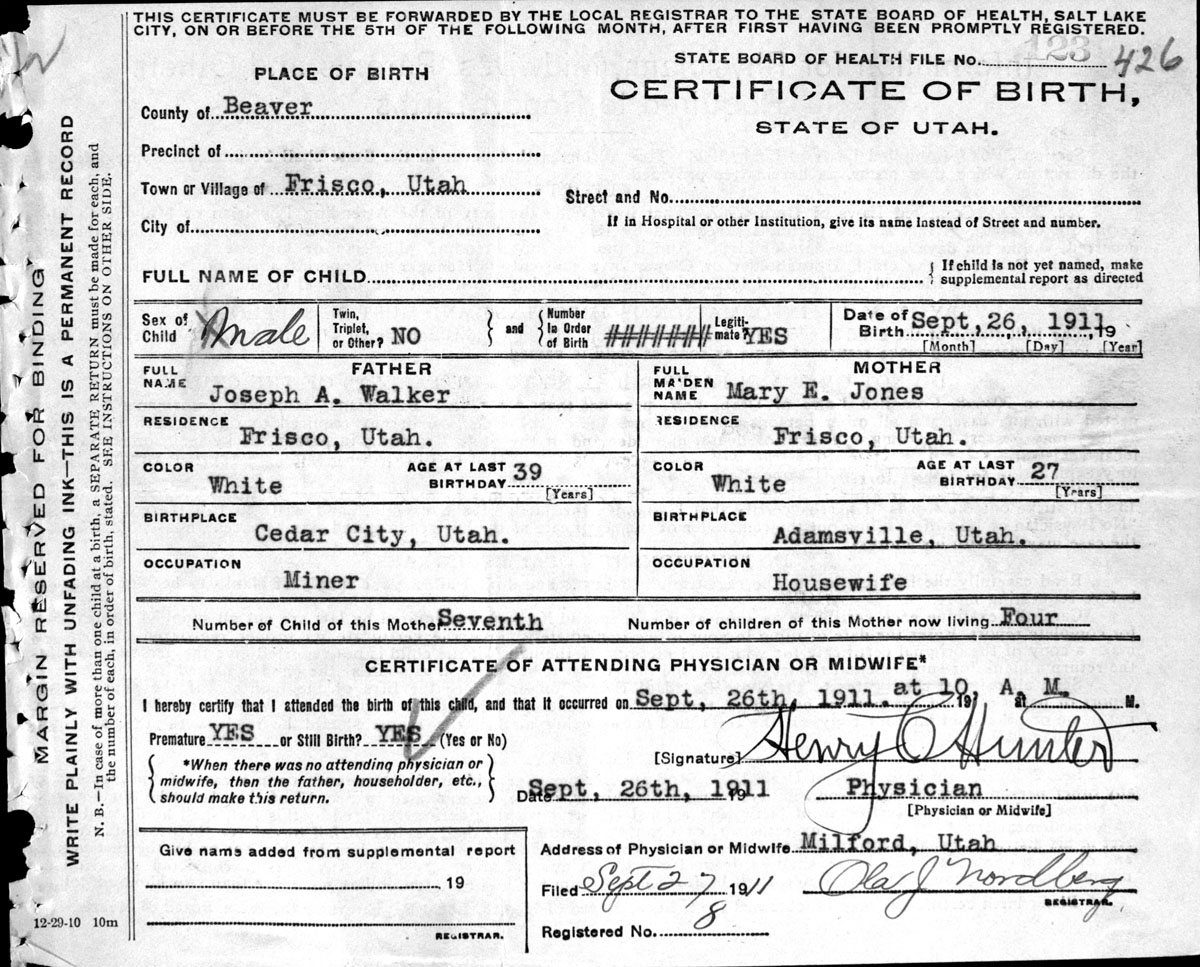 THIS CERTIFICATE MUST BE FORWARDED BY THE LOCAL REGISTRAR TO THE STATE BOARD OF HEALTH, SALT LAKE
CITY, ON OR BEFORE THE 5TH OF THE FOLLOWING MONTH, AFTER FIRST HAVING BEEN PROMPTLY REGISTERED.
STATE BOARD OF HEALTH FILE No. 123 426
PLACE OF BIRTH
CERTIFICATE OF BIRTH,
STATE OF UTAH.
County of Beaver
Precinct of
Town or Village of Frisco, Utah
Street and No.
City of
If in Hospital or other Institution, give its name instead of Street and number.
FULL NAME OF CHILD
{ If child is not yet named, make
supplemental report as directed
Sex of Child Male
Twin, Triplet, or Other? NO
and
Number In Order of Birth #######
Legiti-mate? YES
Date of Birth Sept, 26, 1911, 19
[Month] [Day] [Year]
FATHER
FULL NAME Joseph A. Walker
RESIDENCE Frisco, Utah.
COLOR White
AGE AT LAST BIRTHDAY 39 [Years]
BIRTHPLACE Cedar City, Utah.
OCCUPATION Miner
MOTHER
FULL MAIDEN NAME Mary E. Jones
RESIDENCE Frisco, Utah.
COLOR White
AGE AT LAST BIRTHDAY 27 [Years]
BIRTHPLACE Adamsville, Utah.
OCCUPATION Housewife
Number of Child of this Mother Seventh
Number of children of this Mother now living Four
CERTIFICATE OF ATTENDING PHYSICIAN OR MIDWIFE*
I hereby certify that I attended the birth of this child, and that it occurred on Sept. 26th, 1911. 19 at 10, A. M. at M.
Premature YES or Still Birth? YES (Yes or No)
[Signature] Henry C Hunter
*When there was no attending physician or
midwife, then the father, householder, etc.,
should make this return.
Date Sept, 26th, 1911 19
Physician
[Physician or Midwife]
Give name added from supplemental report
19
REGISTRAR.
Address of Physician or Midwife Milford, Utah
Filed Sept 27 1911
Ola J Nordberg
REGISTRAR.
Registered No. 8
12-29-10 10m
MARGIN RESERVED FOR BINDING
WRITE PLAINLY WITH UNFADING INK—THIS IS A PERMANENT RECORD
N. B.—In case of more than one child at a birth, a SEPARATE RETURN must be made for each, and
the number of each, in order of birth, stated. SEE INSTRUCTIONS ON OTHER SIDE.